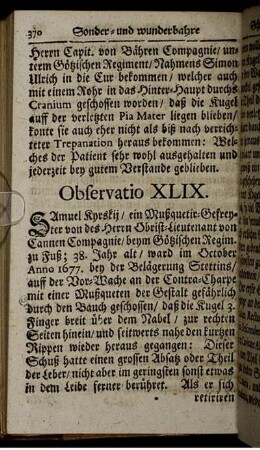 370 Sonder- und wunderbahre
Herrn Capit. von Bähren Compagnie/ un-
term Götzischen Regiment/ Nahmens Simon
Ulrich in die Cur bekommen/ welcher auch
mit einem Rohr in das Hinter-Haupt durchs
Cranium geschossen worden/ daß die Kugel
auff der verletzten Pia Mater liegen blieben/
konte sie auch eher nicht als biß nach verrich-
teter Trepanation heraus bekommen: Wel-
ches der Patient sehr wohl ausgehalten und
jederzeit bey gutem Verstande geblieben.
Observatio XLIX.
SAmuel Kyrskij/ ein Mußquetir-Gefrey-
ter von des Herrn Obrist-Lieutenant von
Cannen Compagnie/ beym Götzischen Regim.
zu Fuß; 38. Jahr alt/ ward im October
Anno 1677. bey der Belägerung Stettins/
auff der Vor-Wache an der Contra-Charpe
mit einer Mußqueten der Gestalt gefährlich
durch den Bauch geschossen/ daß die Kugel 3.
Finger breit über dem Nabel/ zur rechten
Seiten hinein/ und seitwerts nahe den kurtzen
Rippen wieder heraus gegangen: Dieser
Schuß hatte einen grossen Absatz oder Theil
der Leber/ nicht aber im geringsten sonst etwas
in dem Leibe ferner berühret. Als er sich
retiriren